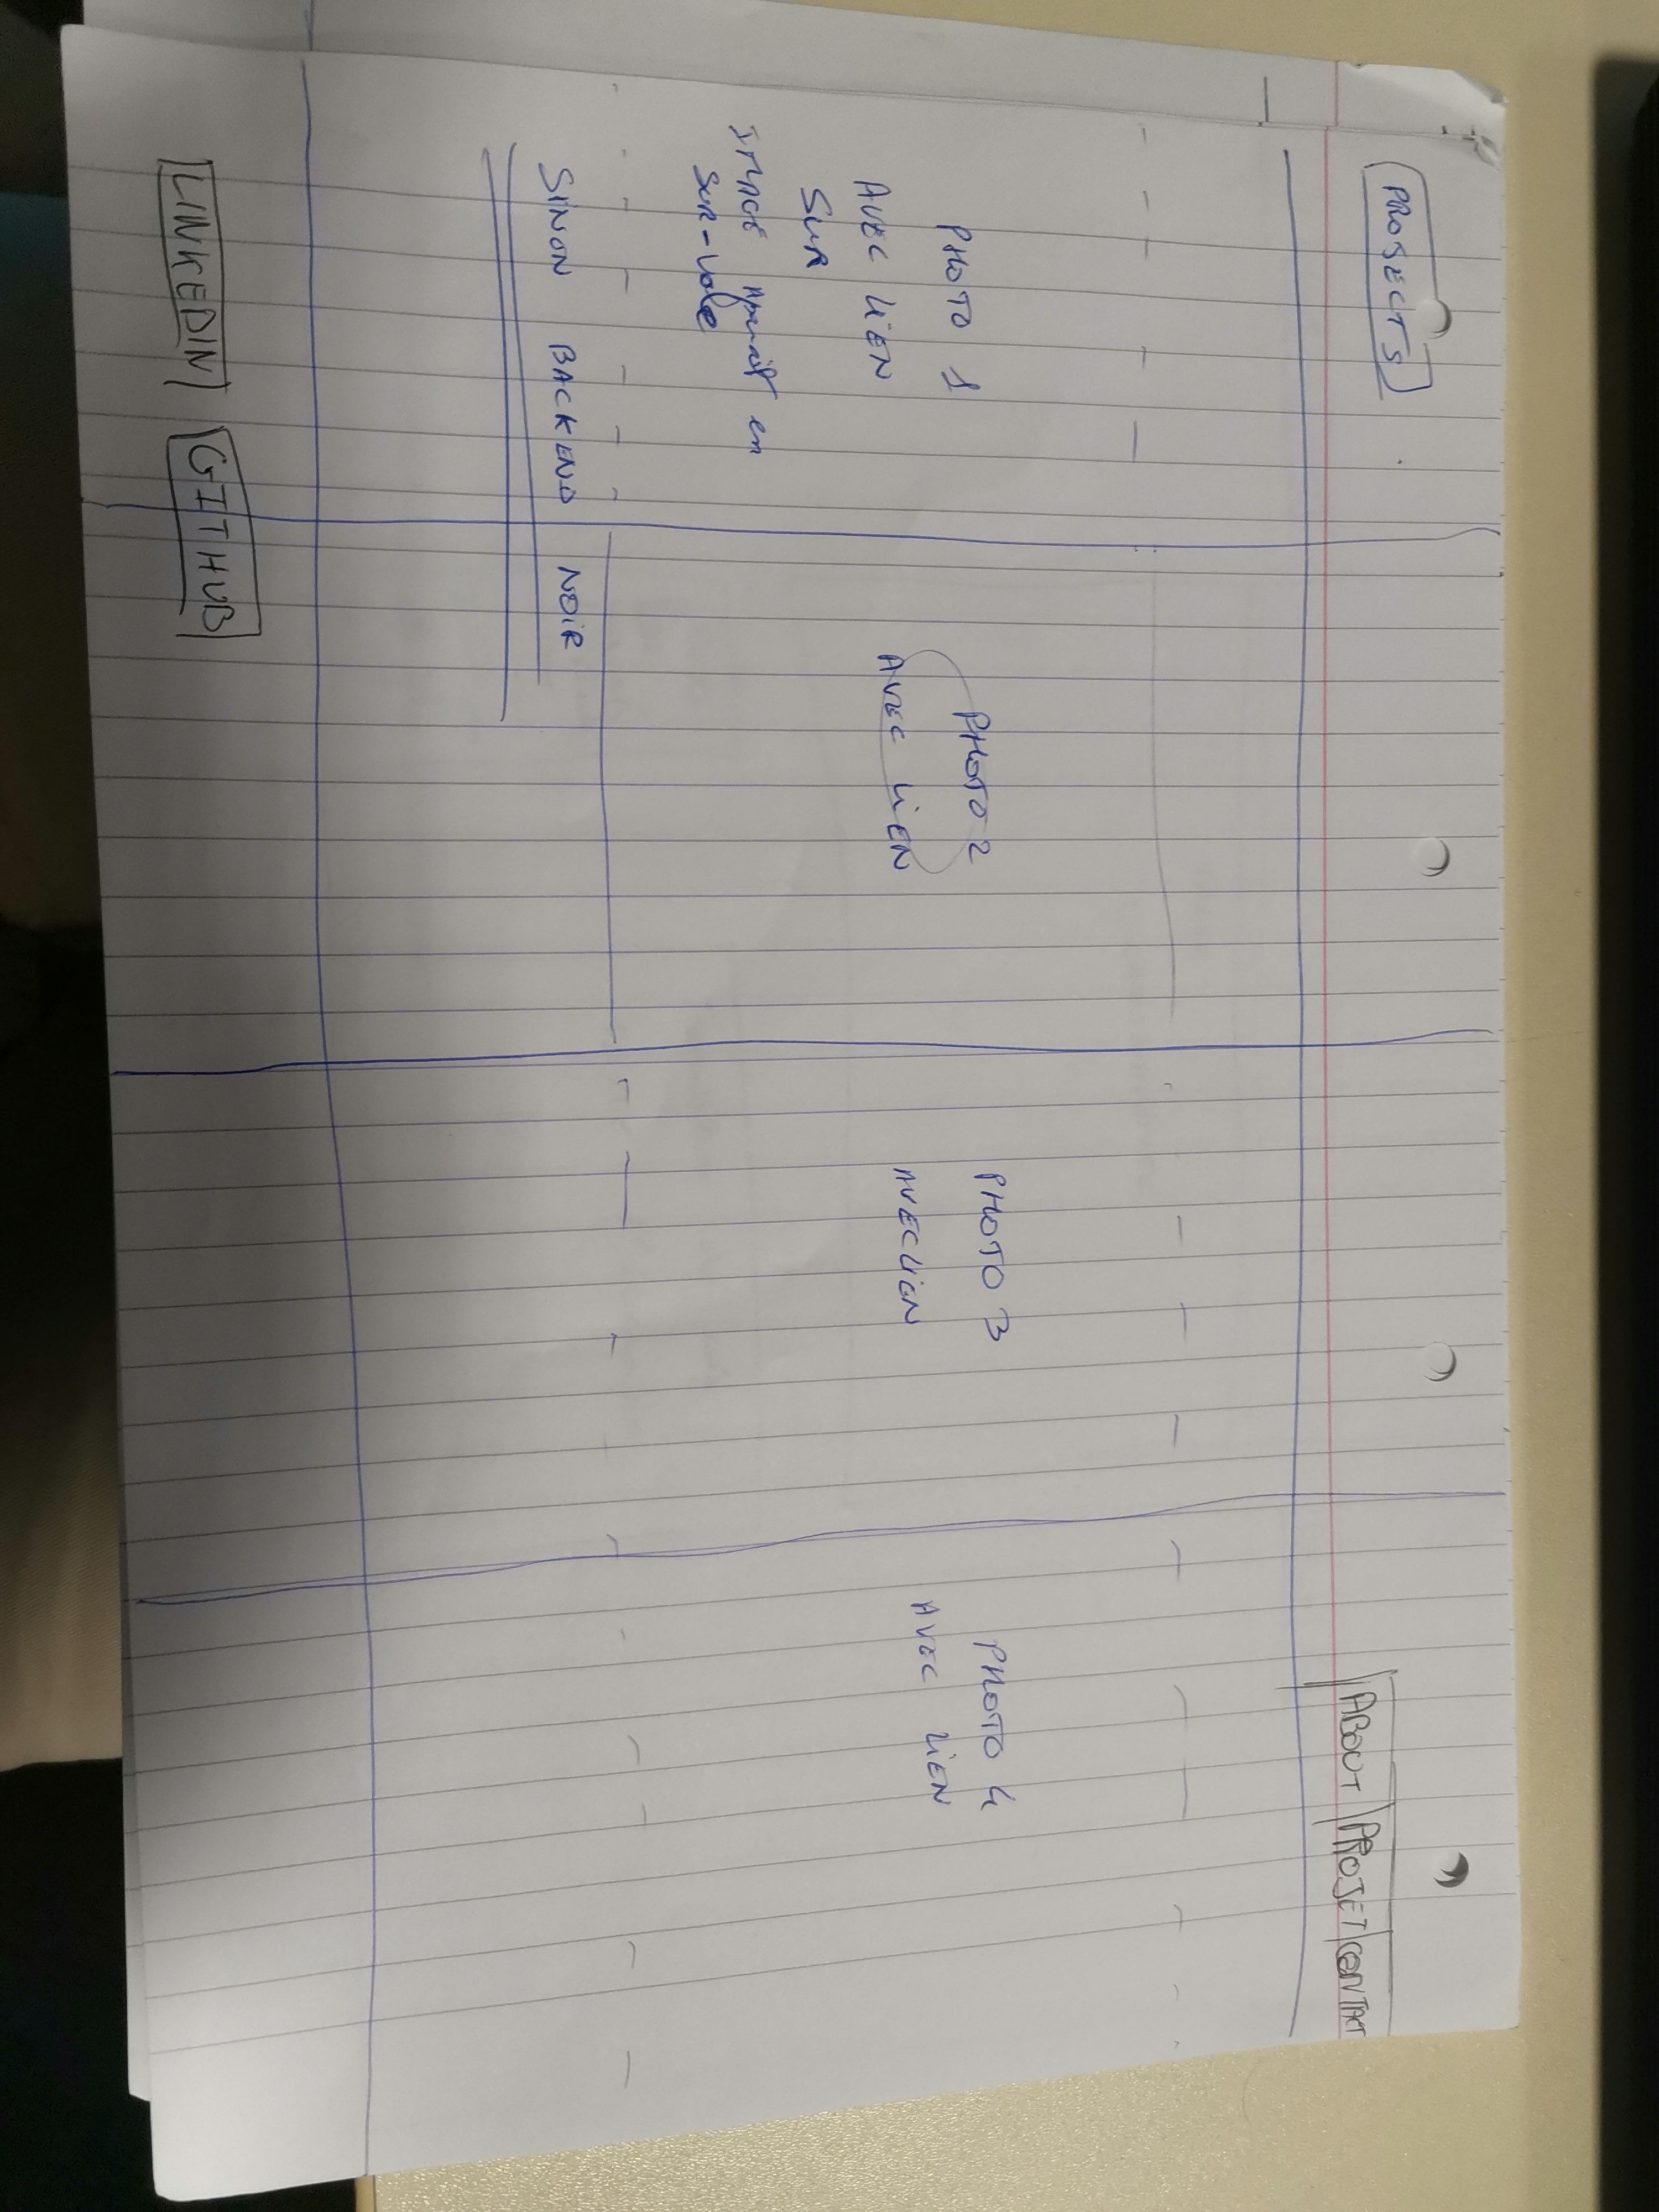 PROJECTS
ABOUT PROJET CONTACT
PHOTO 1
AVEC LIEN
SUR
IMAGE Aparait en
SUR-vole
PHOTO 2
AVEC LIEN
PHOTO 3
AVEC LIEN
PHOTO 4
AVEC LIEN
SINON BACKEND NOIR
LINKEDIN GITHUB